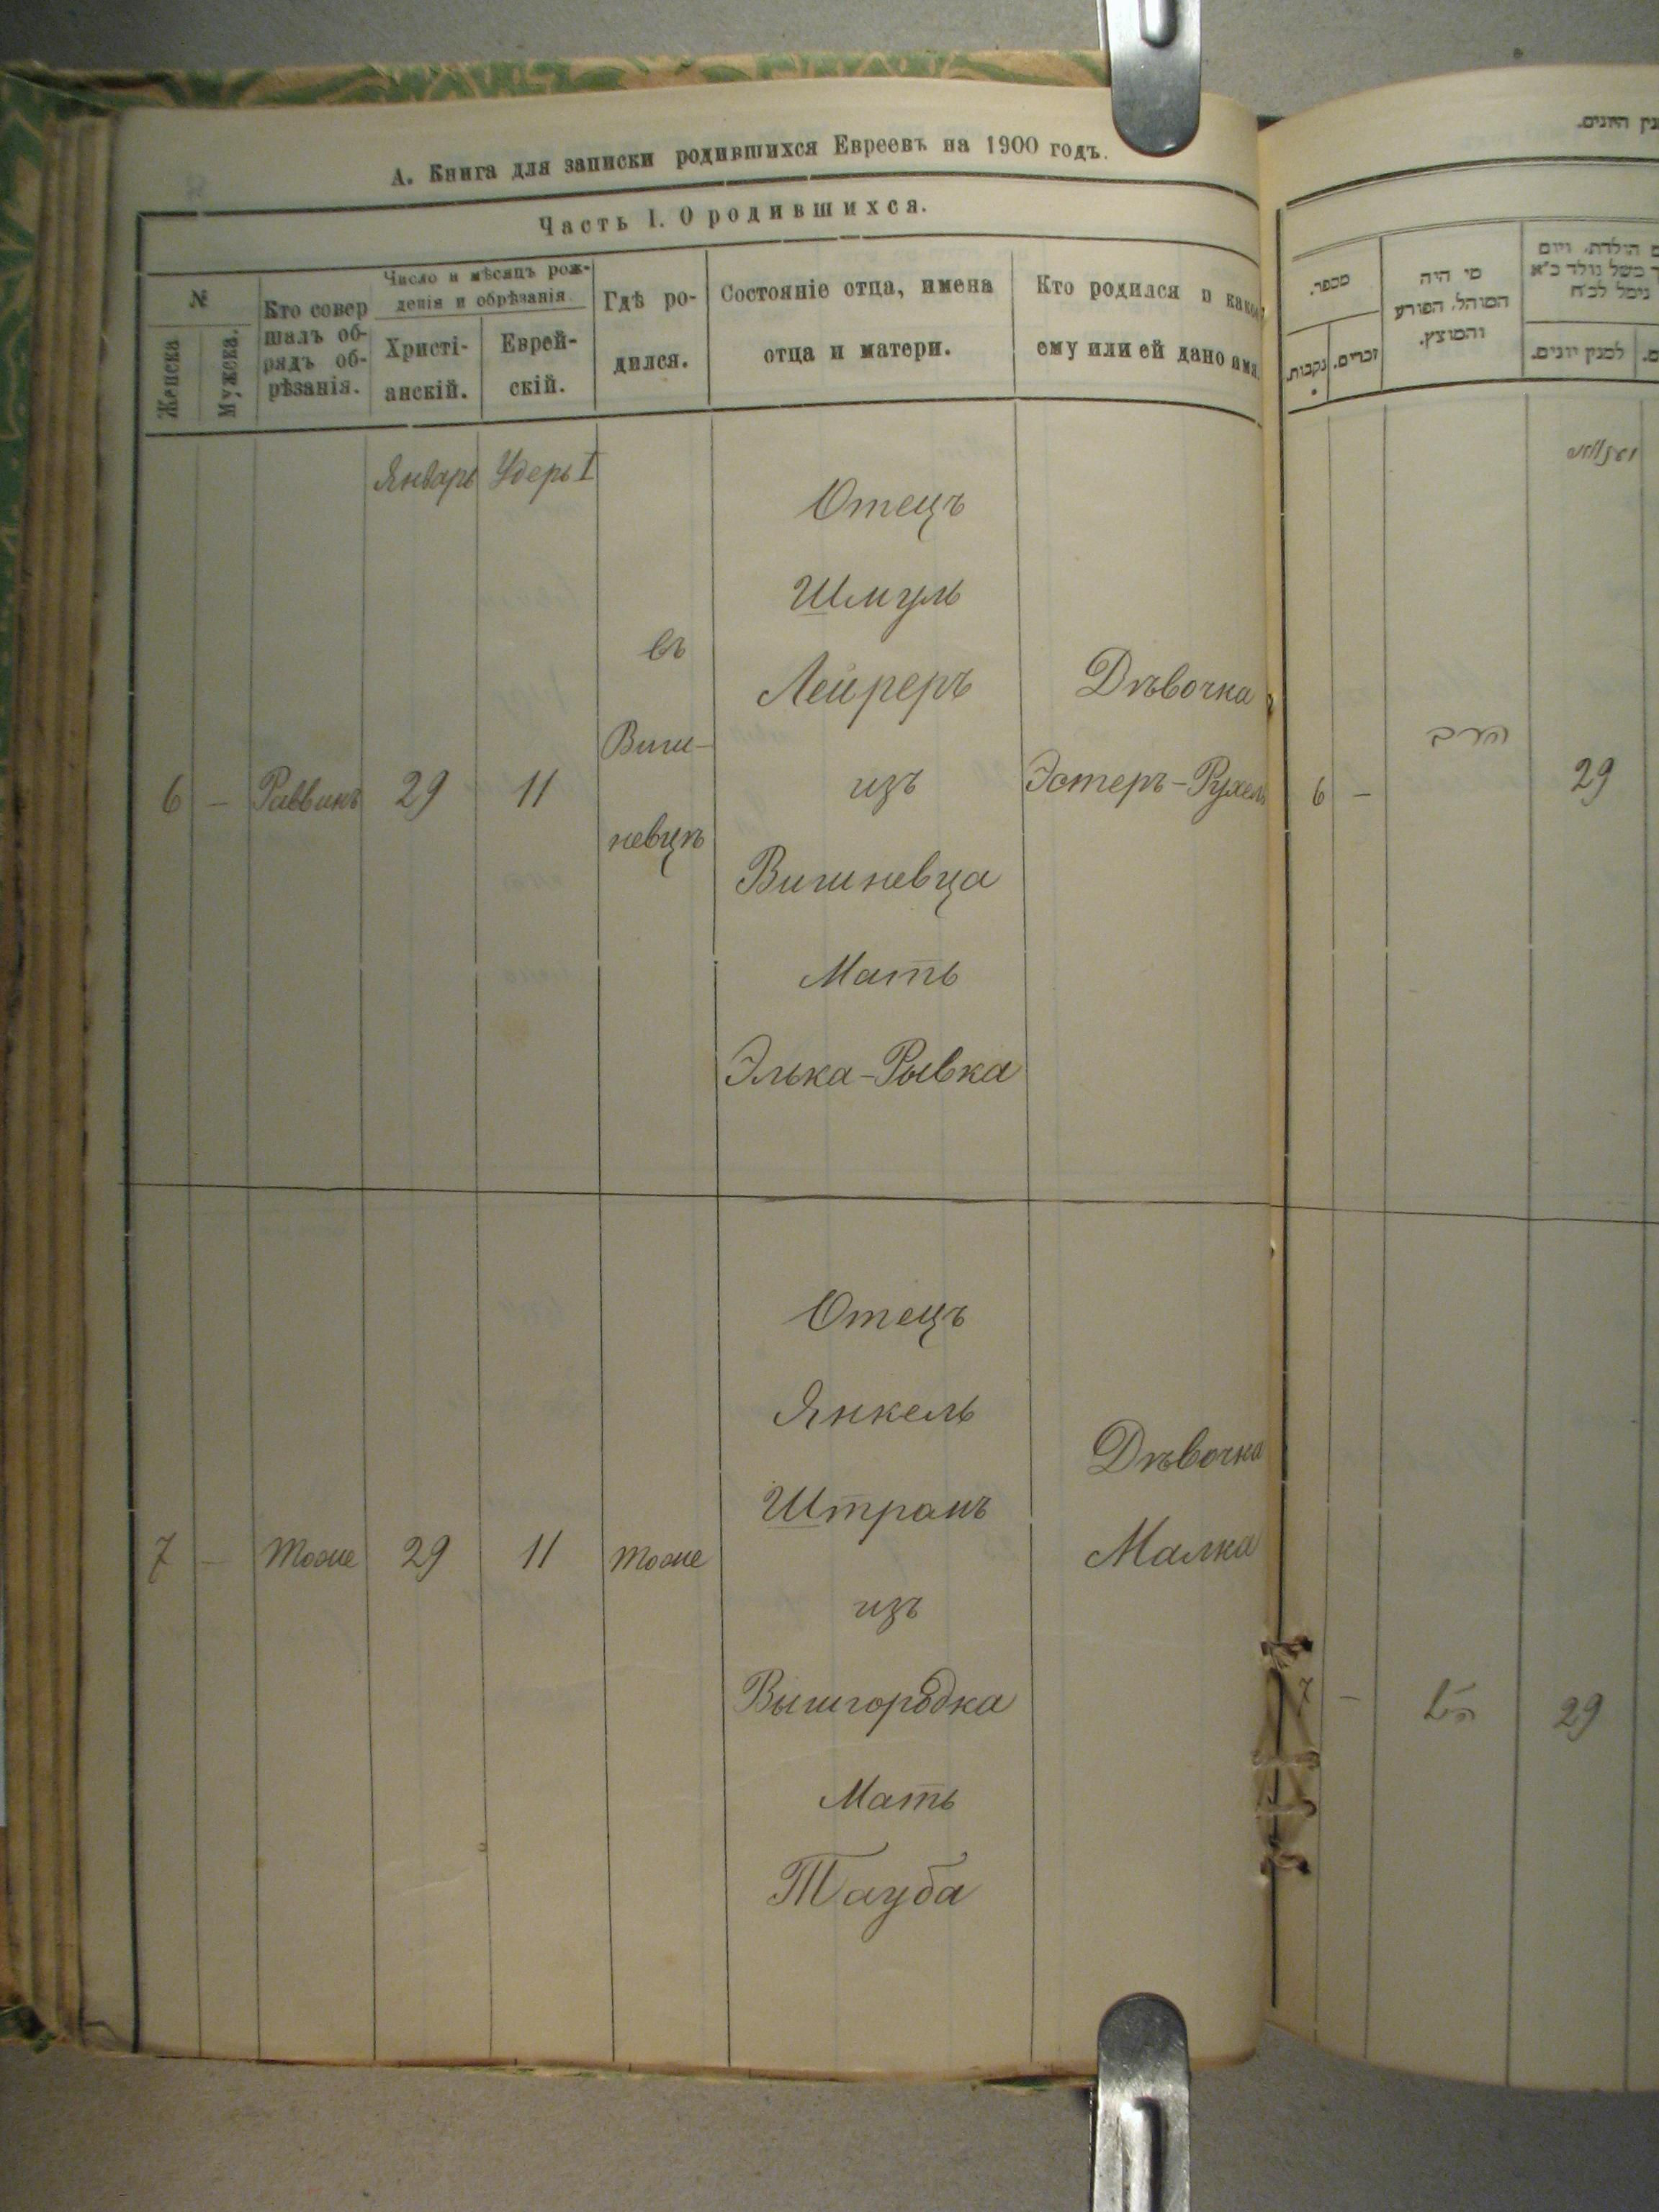 А. Книга для записки родившихся Евреевъ на 1900 годъ.
Часть I. О родившихся.
№
Женска
Мужска.
Кто совер
шалъ об-
рядъ об-
рѣзанія.
Число и мѣсяцъ рож-
денія и обрѣзанія.
Христі-
анскій.
Еврей-
скій.
Гдѣ ро-
дился.
Состояніе отца, имена
отца и матери.
Кто родился и какое
ему или ей дано имя.
Январь Удеръ I
6 – Раввинъ 29 11
въ
Виш-
невцѣ
Отецъ
Шмуль
Лейреръ
изъ
Вишневца
Мать
Элька-Рывка
Дѣвочка
Эстеръ-Рухель
7 – тоже 29 11 тоже
Отецъ
Янкель
Штрамъ
изъ
Вышгородка
Мать
Тауба
Дѣвочка
Малка
מנין היונים.
מספר.
נקבות.
זכרים.
מי היה
המוהל, הפורע
והמוצץ.
הולדת, ויום
למנין יונים.
יאנואר
6 – הרב 29
7 – 29